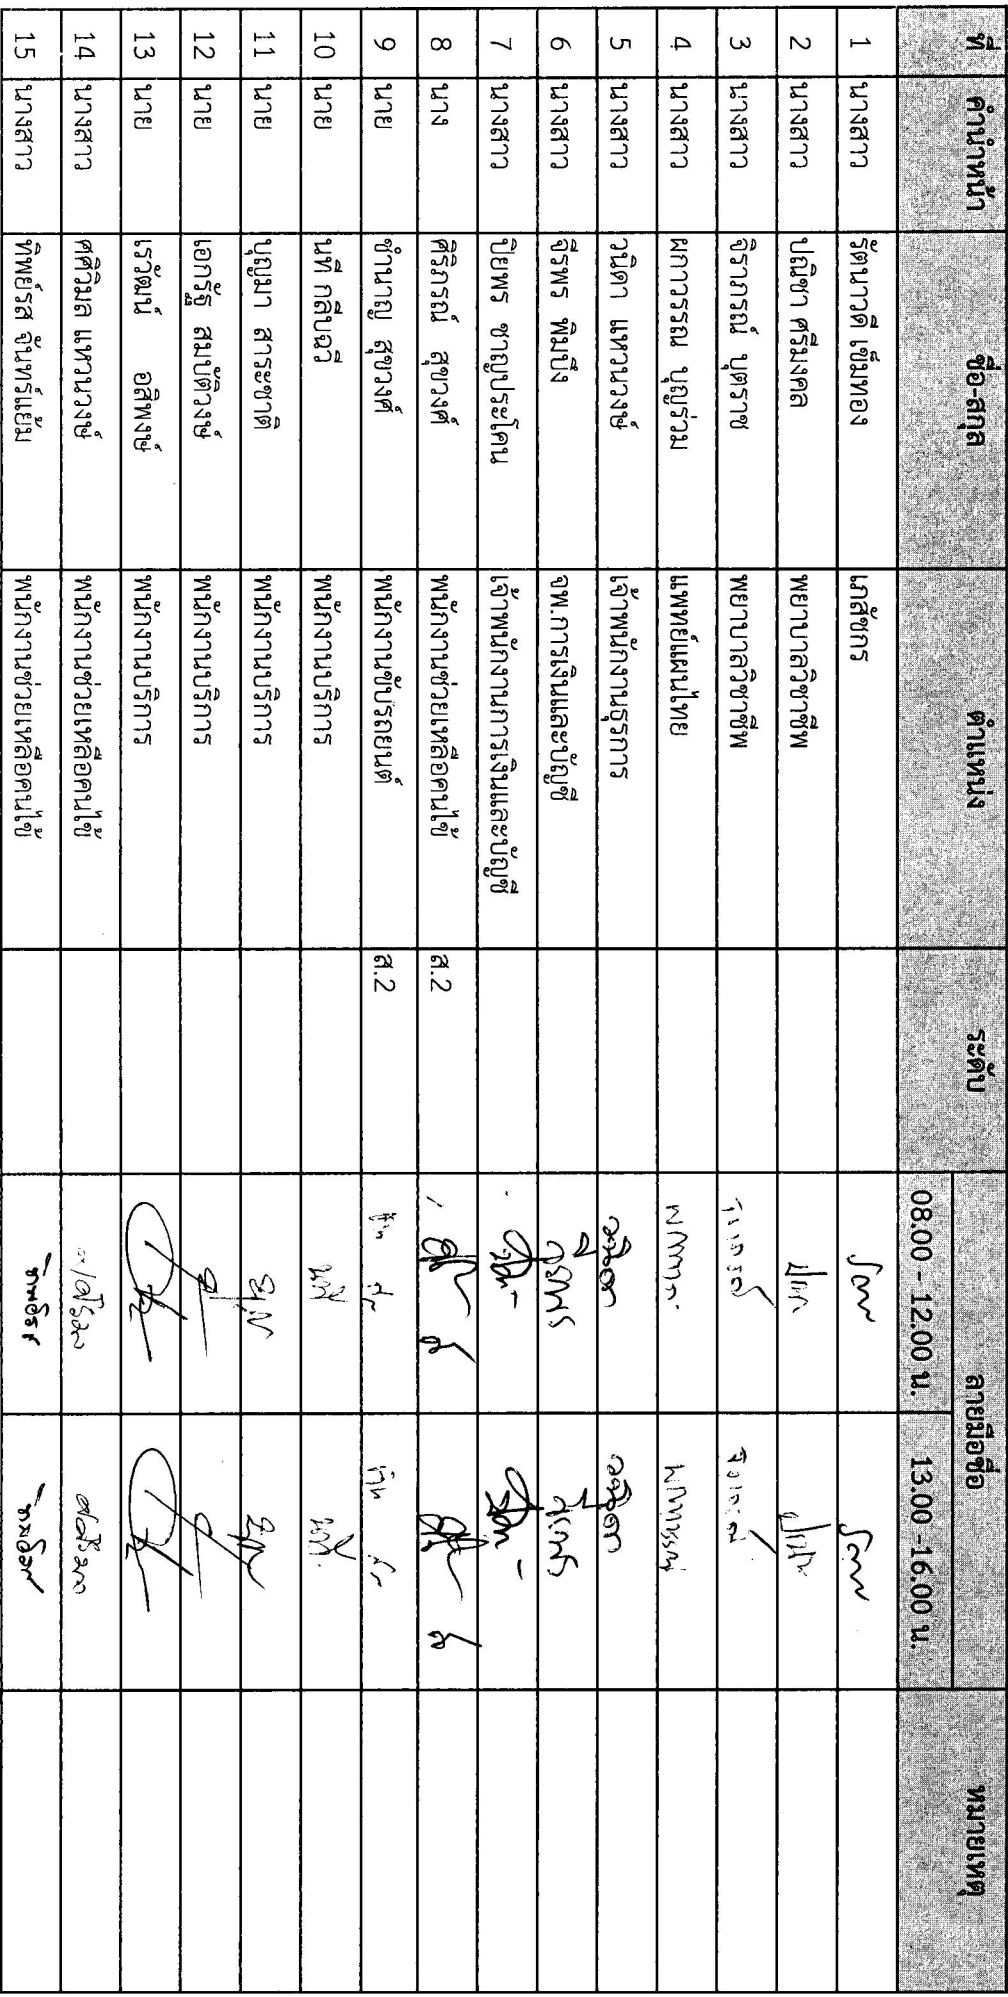 ที่ คำนำหน้า ชื่อ-สกุล ตำแหน่ง ระดับ ลายมือชื่อ หมายเหตุ
08.00 - 12.00 น. 13.00 -16.00 น.
1 นางสาว รัตนาวดี เข็มทอง เภสัชกร
2 นางสาว ปณิชา ศรีมงคล พยาบาลวิชาชีพ
3 นางสาว จิราภรณ์ บุตราช พยาบาลวิชาชีพ
4 นางสาว ผกาวรรณ บุญร่วม แพทย์แผนไทย
5 นางสาว วนิดา แหวนวงษ์ เจ้าพนักงานธุรการ วนิดา วนิดา
6 นางสาว จีรพร พิมบึง จพ.การเงินและบัญชี จีรพร จีรพร
7 นางสาว ปิยพร ชาญประโคน เจ้าพนักงานการเงินและบัญชี
8 นาง ศิริภรณ์ สุขวงศ์ พนักงานช่วยเหลือคนไข้ ส.2
9 นาย ชำนาญ สุขวงศ์ พนักงานขับรถยนต์ ส.2
10 นาย นที กลีบฉวี พนักงานบริการ นที นที
11 นาย บุญมา สาระชาติ พนักงานบริการ
12 นาย เอกรัฐ สมบัติวงษ์ พนักงานบริการ
13 นาย เรวัฒน์ อสิพงษ์ พนักงานบริการ
14 นางสาว ศศิวิมล แหวนวงษ์ พนักงานช่วยเหลือคนไข้
15 นางสาว ทิพย์รส จันทร์แย้ม พนักงานช่วยเหลือคนไข้